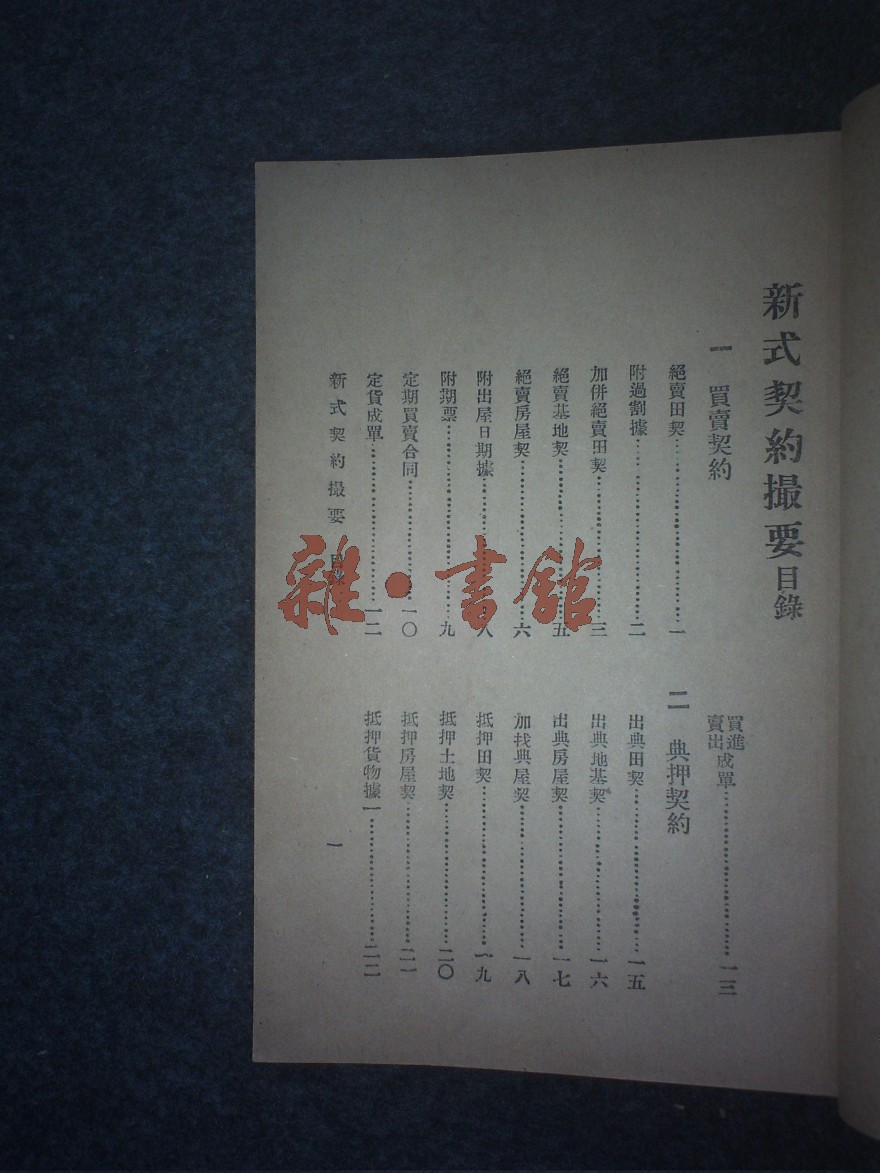 新式契約撮要目錄
一 買賣契約
絕賣田契…………一
附過割據…………二
加併絕賣田契…………三
絕賣基地契…………五
絕賣房屋契…………六
附出屋日期據…………八
附期票…………九
定期買賣合同…………一〇
定貨成單…………一二
買進賣出成單…………一三
二 典押契約
出典田契…………一五
出典地基契…………一六
出典房屋契…………一七
加找典屋契…………一八
抵押田契…………一九
抵押土地契…………二〇
抵押房屋契…………二一
抵押貨物據一…………二二
新式契約撮要 目錄 一
雜·書館